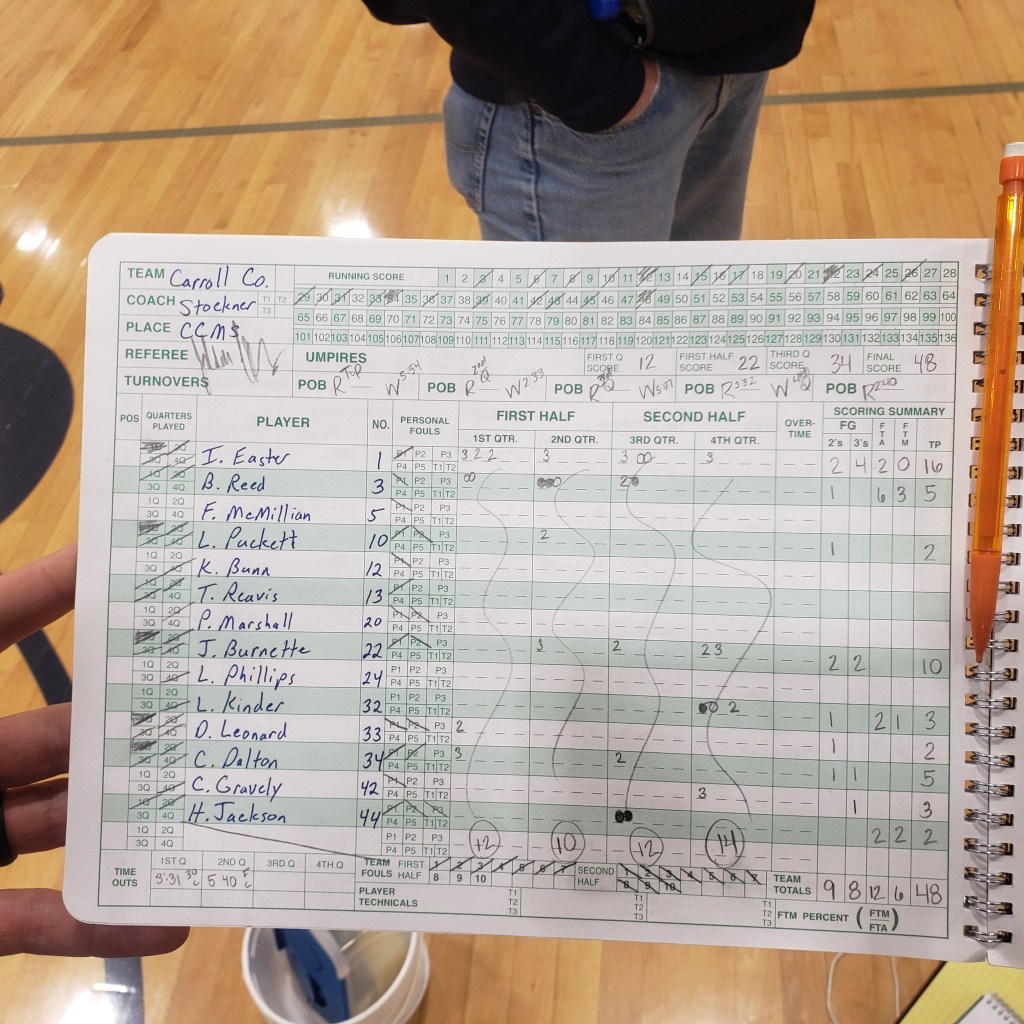 TEAM Carroll Co. RUNNING SCORE 1 2 3 4 5 6 7 8 9 10 11 12 13 14 15 16 17 18 19 20 21 22 23 24 25 26 27 28
COACH Stockner T1 T2 T3 29 30 31 32 33 34 35 36 37 38 39 40 41 42 43 44 45 46 47 48 49 50 51 52 53 54 55 56 57 58 59 60 61 62 63 64
65 66 67 68 69 70 71 72 73 74 75 76 77 78 79 80 81 82 83 84 85 86 87 88 89 90 91 92 93 94 95 96 97 98 99 100
PLACE CCMS 101 102 103 104 105 106 107 108 109 110 111 112 113 114 115 116 117 118 119 120 121 122 123 124 125 126 127 128 129 130 131 132 133 134 135 136
REFEREE UMPIRES FIRST Q SCORE 12 FIRST HALF SCORE 22 THIRD Q SCORE 34 FINAL SCORE 48
TURNOVERS POB R Tip W 5:54 POB R 2nd Q W 2:33 POB R 3rd Q W 5:07 POB R 5:32 W 4th Q POB R 2:40
POS QUARTERS PLAYED PLAYER NO. PERSONAL FOULS FIRST HALF SECOND HALF OVER-TIME SCORING SUMMARY
1ST QTR. 2ND QTR. 3RD QTR. 4TH QTR. FG 2's 3's FTA FTM TP
I. Easter 1 P1 P2 P3 P4 P5 T1 T2 3 2 2 3 3 00 3 2 4 2 0 16
B. Reed 3 P1 P2 P3 P4 P5 T1 T2 00 2 1 6 3 5
1Q 2Q 3Q 4Q F. McMillian 5 P1 P2 P3 P4 P5 T1 T2
L. Puckett 10 P1 P2 P3 P4 P5 T1 T2 2 1 2
1Q 2Q 3Q 4Q K. Bunn 12 P1 P2 P3 P4 P5 T1 T2
1Q 2Q 3Q 4Q T. Reavis 13 P1 P2 P3 P4 P5 T1 T2
1Q 2Q 3Q 4Q P. Marshall 20 P1 P2 P3 P4 P5 T1 T2
J. Burnette 22 P1 P2 P3 P4 P5 T1 T2 3 2 2 3 2 2 10
1Q 2Q 3Q 4Q L. Phillips 24 P1 P2 P3 P4 P5 T1 T2
1Q 2Q 3Q 4Q L. Kinder 32 P1 P2 P3 P4 P5 T1 T2 0 2 1 2 1 3
D. Leonard 33 P1 P2 P3 P4 P5 T1 T2 2 1 2
C. Dalton 34 P1 P2 P3 P4 P5 T1 T2 3 2 1 1 5
1Q 2Q 3Q 4Q C. Gravely 42 P1 P2 P3 P4 P5 T1 T2 3 1 3
1Q 2Q 3Q 4Q H. Jackson 44 P1 P2 P3 P4 P5 T1 T2 2 2 2
1Q 2Q 3Q 4Q P1 P2 P3 P4 P5 T1 T2 12 10 12 14
TIME OUTS 1ST Q 2ND Q 3RD Q 4TH Q TEAM FOULS FIRST HALF 1 2 3 4 5 6 7 8 9 10 SECOND HALF 1 2 3 4 5 6 7 8 9 10 TEAM TOTALS 9 8 12 6 48
PLAYER TECHNICALS T1 T2 T3 T1 T2 T3 T1 T2 T3 FTM PERCENT (FTM/FTA)